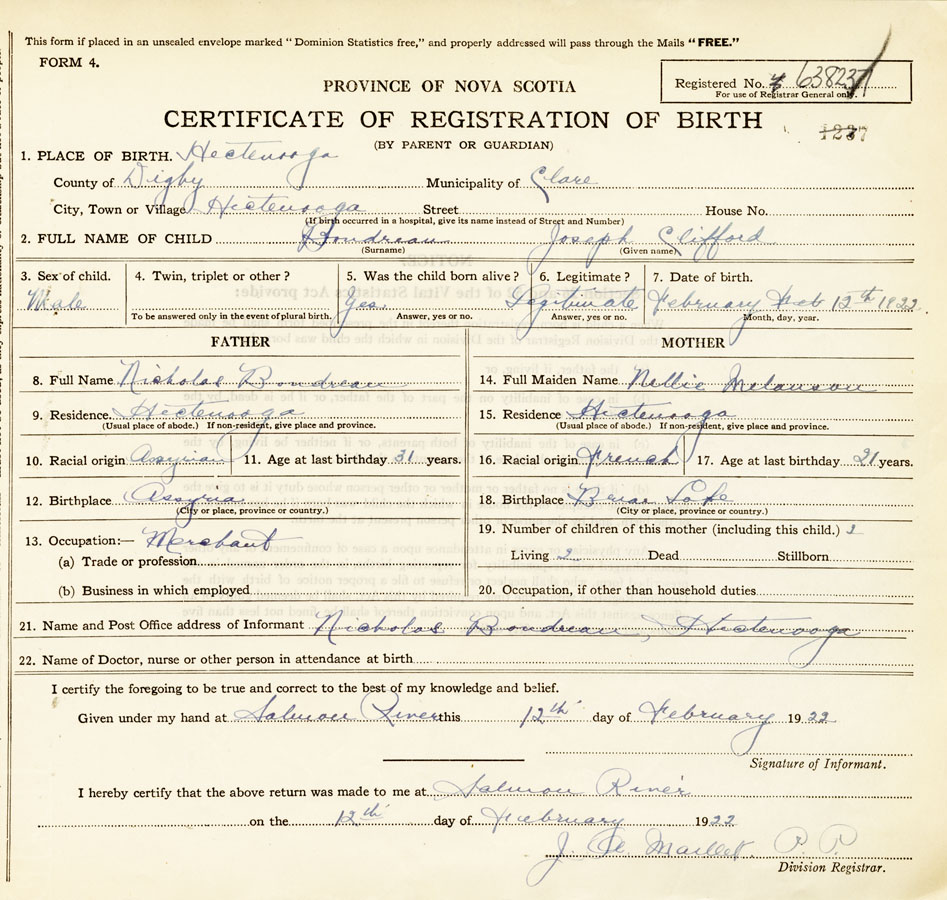 This form if placed in an unsealed envelope marked "Dominion Statistics free," and properly addressed will pass through the Mails "FREE."
FORM 4.
Registered No. 638237
For use of Registrar General only.
PROVINCE OF NOVA SCOTIA
CERTIFICATE OF REGISTRATION OF BIRTH
1237
(BY PARENT OR GUARDIAN)
1. PLACE OF BIRTH. Hectenooga
County of Digby Municipality of Clare
City, Town or Village Hictenooga Street House No.
(If birth occurred in a hospital, give its name instead of Street and Number)
2. FULL NAME OF CHILD Boudreau Joseph Clifford
(Surname) (Given name)
3. Sex of child. 4. Twin, triplet or other? 5. Was the child born alive? 6. Legitimate? 7. Date of birth.
Male Yes. Legitimate February Feb 12th 1922
To be answered only in the event of plural birth. Answer, yes or no. Answer, yes or no. Month, day, year.
FATHER MOTHER
8. Full Name Nicholas Boudreau 14. Full Maiden Name Nellie Melanson
9. Residence. Hictenooga 15. Residence Hictenooga
(Usual place of abode.) If non-resident, give place and province. (Usual place of abode.) If non-resident, give place and province.
10. Racial origin Assyrian 11. Age at last birthday 31 years. 16. Racial origin French 17. Age at last birthday 21 years.
12. Birthplace Assyria 18. Birthplace Briar Lake
(City or place, province or country.) (City or place, province or country.)
13. Occupation:— Merchant 19. Number of children of this mother (including this child.) 2
(a) Trade or profession Living 2 Dead Stillborn
(b) Business in which employed 20. Occupation, if other than household duties
21. Name and Post Office address of Informant Nicholas Boudreau, Hictenooga
22. Name of Doctor, nurse or other person in attendance at birth
I certify the foregoing to be true and correct to the best of my knowledge and belief.
Given under my hand at Salmon River this 12th day of February 1922
Signature of Informant.
I hereby certify that the above return was made to me at Salmon River
on the 12th day of February 1922
J. A. Maillet. P. P.
Division Registrar.